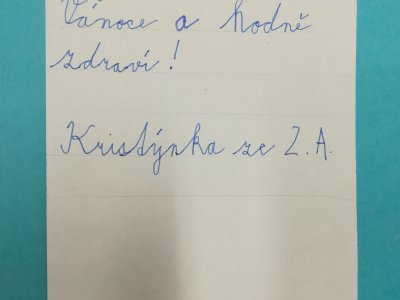 Vánoce a hodně
zdraví!
Kristýnka ze 2. A.